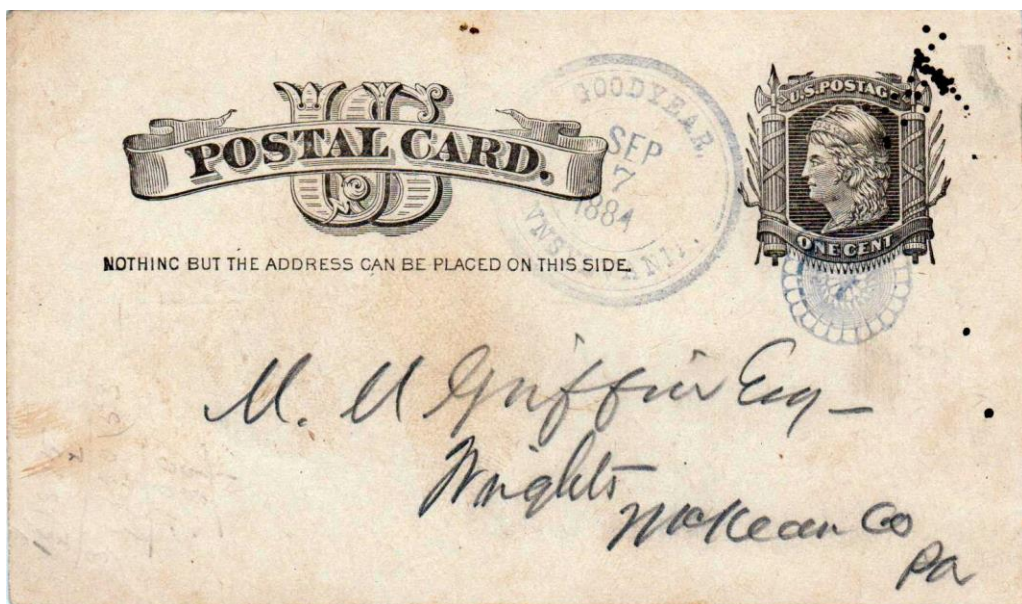 US
POSTAL CARD.
NOTHING BUT THE ADDRESS CAN BE PLACED ON THIS SIDE.
GOODYEAR.
SEP
7
1884
U.S. POSTAGE
ONE CENT
M. M Griffin Esq —
Wrights
McKean Co
Pa